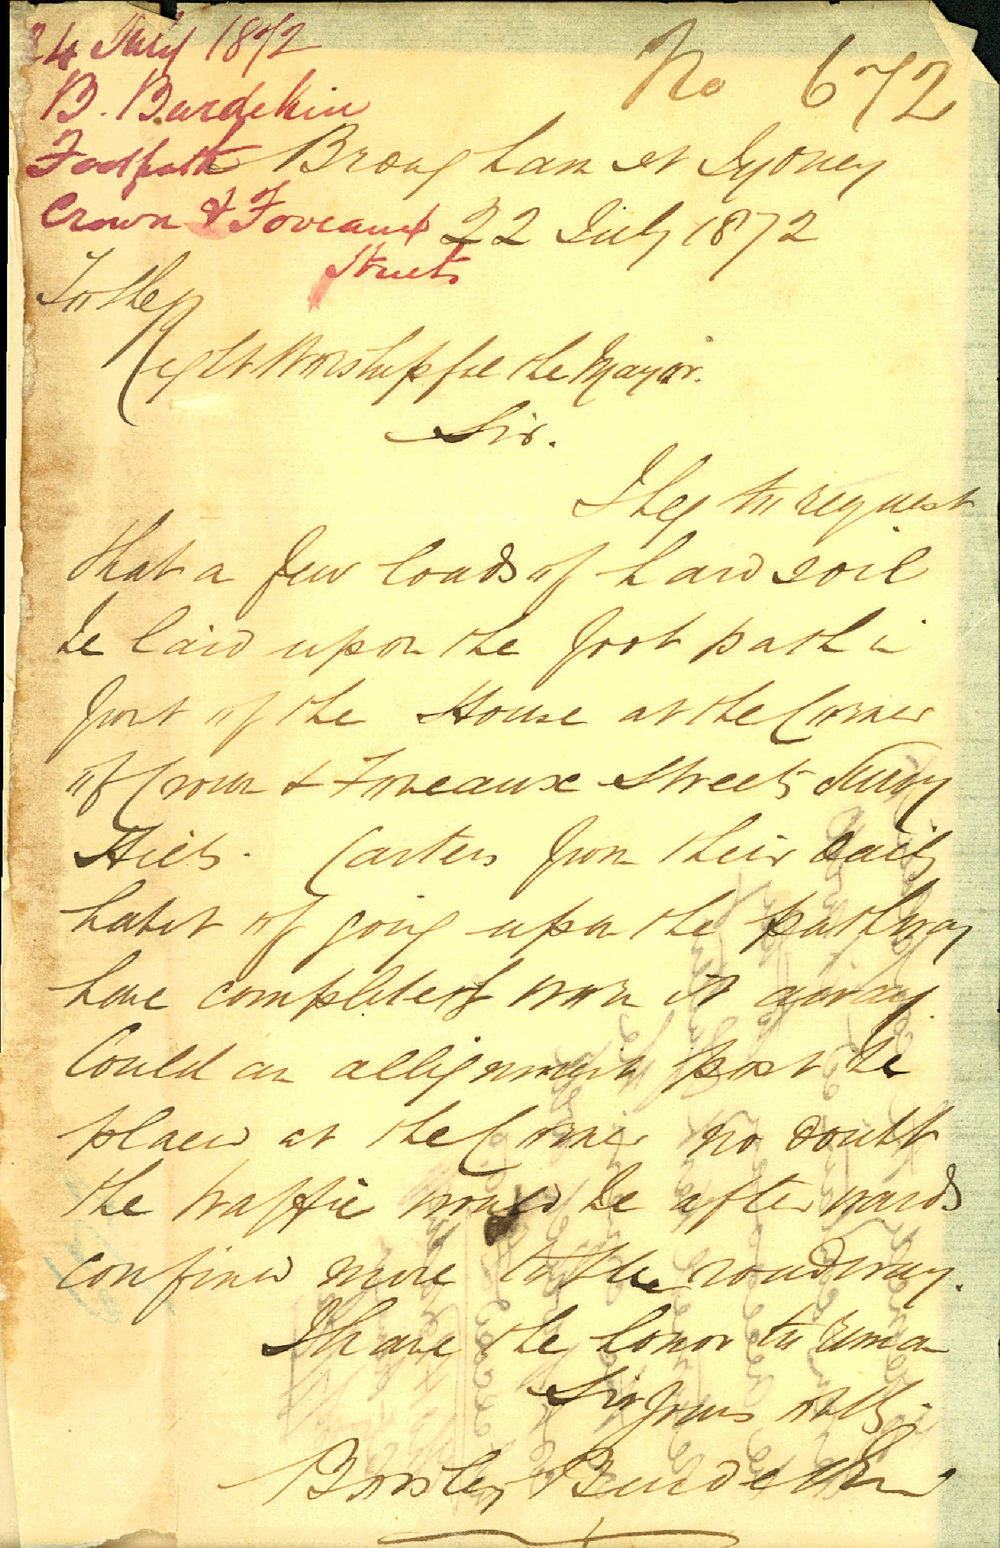 24 July 1872
B. Burdekin
Footpath
Crown & Foveaux
Streets
No 672
Brougham St Sydney
22 July 1872
To the
Right Worshipful the Mayor.
Sir.
I beg to request
that a few loads of hard soil
be laid upon the foot path in
front of the House at the Corner
of Crown & Foveaux Streets Surry
Hills. Carters from their daily
habit of going upon the pathway
have completely worn it away.
Could an allignment post be
placed at the Corner no doubt
the traffic would be afterwards
confined more to the roadway.
I have the honor to remain
Sir yours
Burdekin